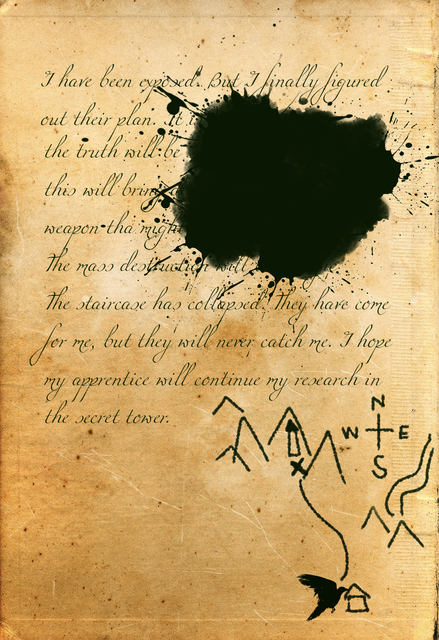 I have been exposed. But I finally figured
out their plan. It
the truth will be
this will bring
weapon tha might
The mass destruction will
The staircase has collapsed. They have come
for me, but they will never catch me. I hope
my apprentice will continue my research in
the secret tower.
N
W E
S
X